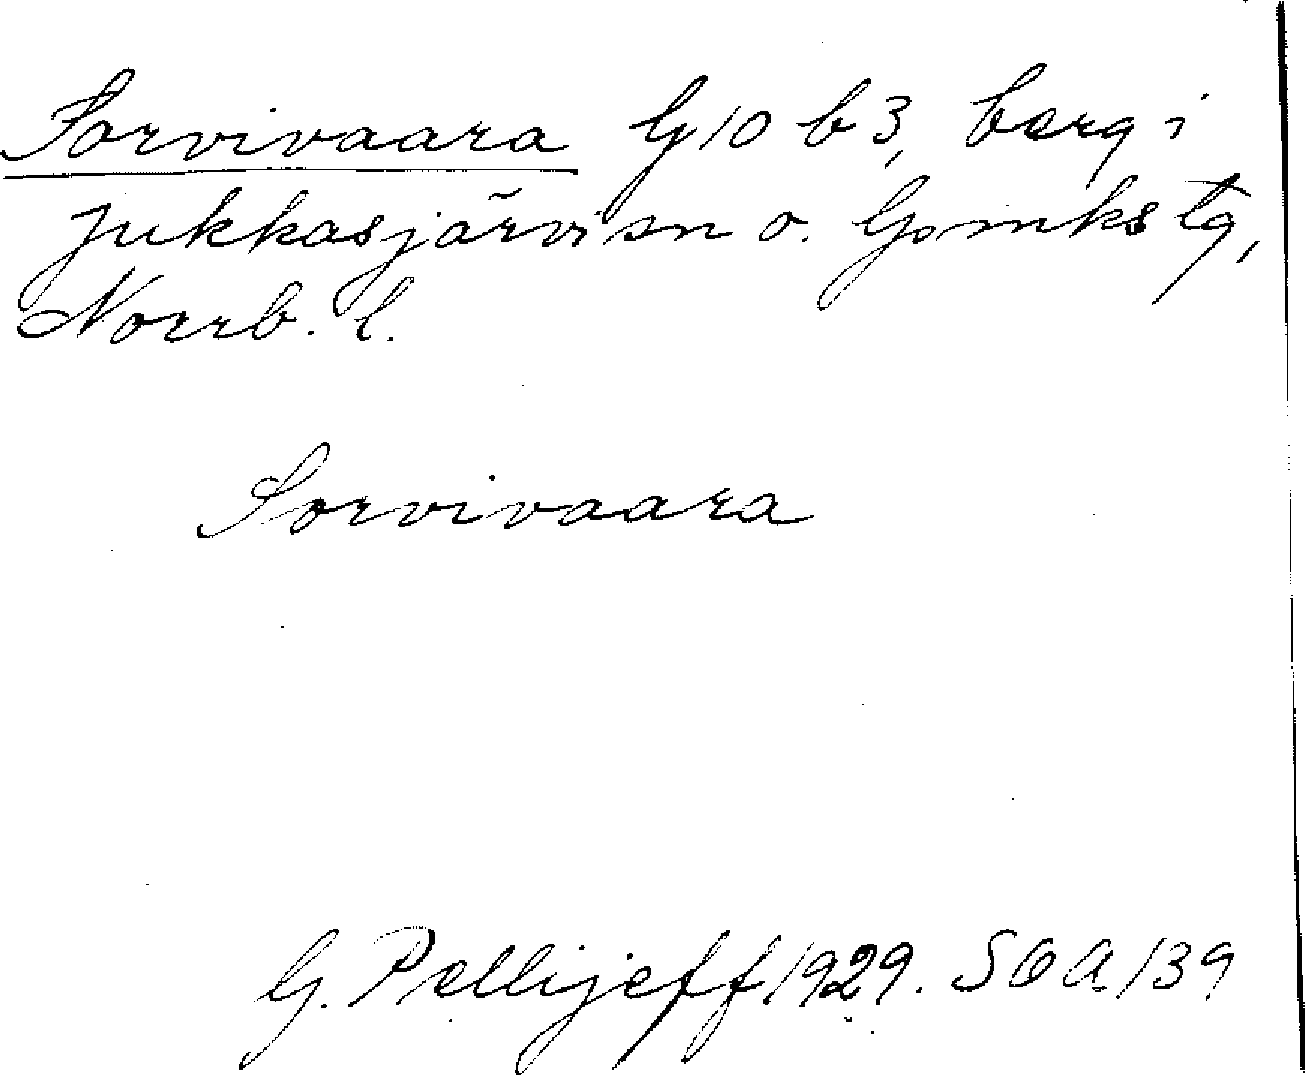 Sorvivaara G 10 b 3, berg i
Jukkasjärvi sn o. Lpmks tg,
Norrb. l.
Sorvivaara
G. Pellijeff 1929. SOA/39